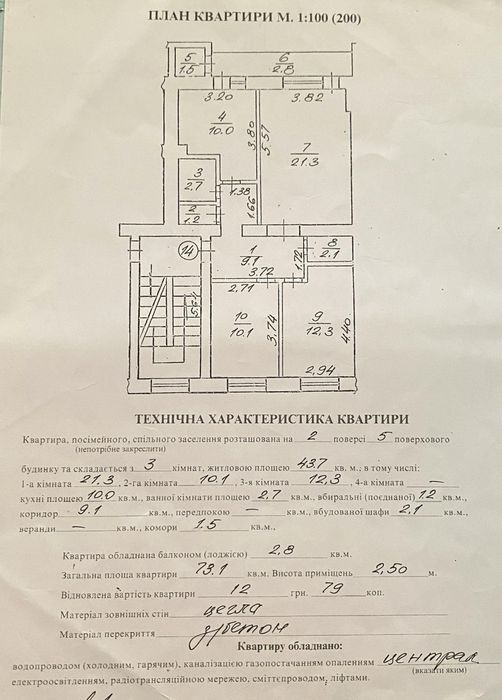 ПЛАН КВАРТИРИ М. 1:100 (200)
5
1.5
6
2.8
3.20
3.82
4
10.0
3.80
5.57
7
21.3
3
2.7
1.38
2
1.2
1.66
14
1
9.1
3.72
1.72
8
2.1
2.71
10
10.1
3.74
9
12.3
4.40
2.94
ТЕХНІЧНА ХАРАКТЕРИСТИКА КВАРТИРИ
Квартира, посімейного, спільного заселення розташована на 2 поверсі 5 поверхового
(непотрібне закреслити)
будинку та складається з 3 кімнат, житловою площею 43.7 кв. м., в тому числі:
1-а кімната 21,3, 2-га кімната 10.1, 3-я кімната 12,3, 4-а кімната —
кухні площею 10.0 кв.м., ванної кімнати площею 2,7 кв.м., вбиральні (поєднаної) 1.2 кв.м.,
коридор 9.1 кв.м., передпокою — кв.м., вбудованої шафи 2,1 кв.м.,
веранди — кв.м., комори 1.5 кв.м.,
Квартира обладнана балконом (лоджією) 2,8 кв.м.
Загальна площа квартири 73.1 кв.м. Висота приміщень 2,50 м.
Відновлена вартість квартири 12 грн. 79 коп.
Матеріал зовнішніх стін цегла
Матеріал перекриття з/бетон
Квартиру обладнано:
водопроводом (холодним, гарячим), каналізацією газопостачанням опаленням централ
(вказати яким)
електроосвітленням, радіотрансляційною мережею, сміттєпроводом, ліфтами.